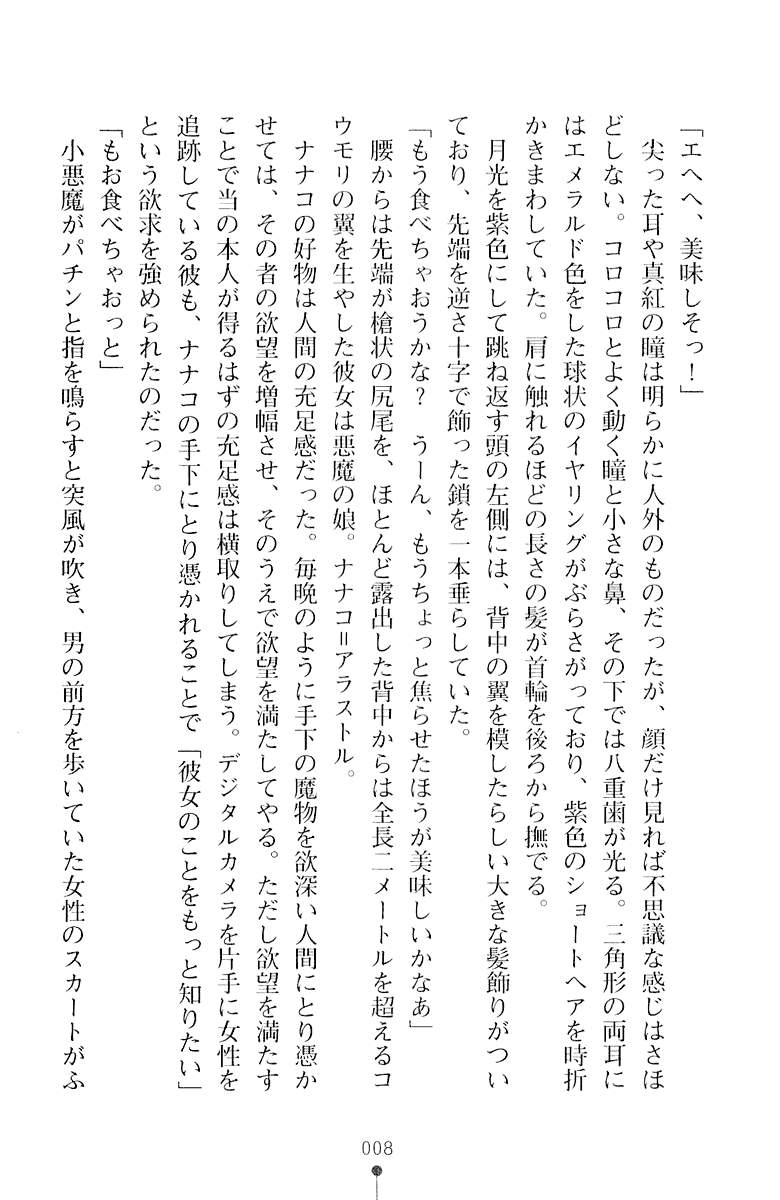 「エヘヘ、美味しそっ！」
　尖った耳や真紅の瞳は明らかに人外のものだったが、顔だけ見れば不思議な感じはさほ
どしない。コロコロとよく動く瞳と小さな鼻、その下では八重歯が光る。三角形の両耳に
はエメラルド色をした球状のイヤリングがぶらさがっており、紫色のショートヘアを時折
かきまわしていた。肩に触れるほどの長さの髪が首輪を後ろから撫でる。
　月光を紫色にして跳ね返す頭の左側には、背中の翼を模したらしい大きな髪飾りがつい
ており、先端を逆さ十字で飾った鎖を一本垂らしていた。
「もう食べちゃおうかな？　うーん、もうちょっと焦らせたほうが美味しいかなぁ」
　腰からは先端が槍状の尻尾を、ほとんど露出した背中からは全長二メートルを超えるコ
ウモリの翼を生やした彼女は悪魔の娘。ナナコ＝アラストル。
　ナナコの好物は人間の充足感だった。毎晩のように手下の魔物を欲深い人間にとり憑か
せては、その者の欲望を増幅させ、そのうえで欲望を満たしてやる。ただし欲望を満たす
ことで当の本人が得るはずの充足感は横取りしてしまう。デジタルカメラを片手に女性を
追跡している彼も、ナナコの手下にとり憑かれることで「彼女のことをもっと知りたい」
という欲求を強められたのだった。
「もお食べちゃおっと」
　小悪魔がパチンと指を鳴らすと突風が吹き、男の前方を歩いていた女性のスカートがふ
008